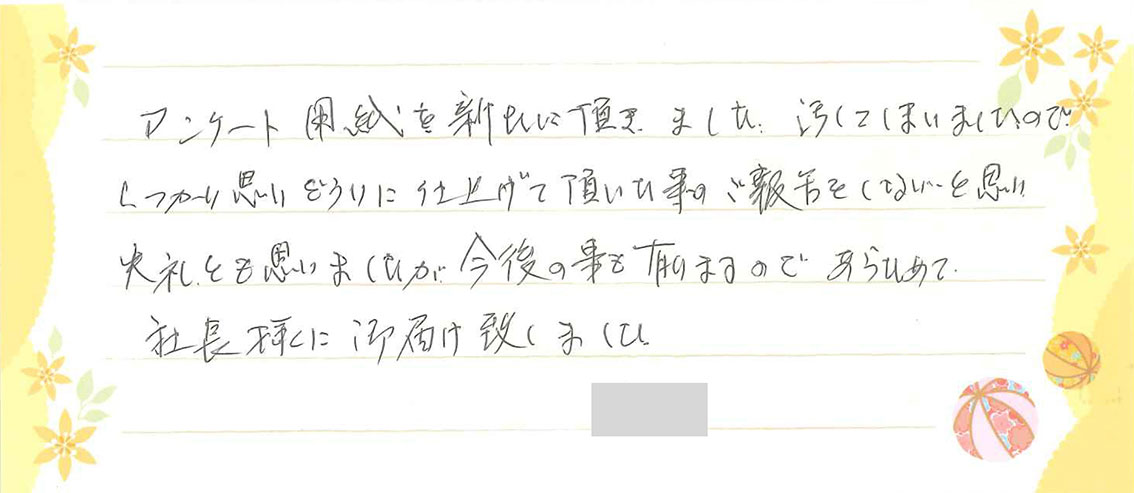 アンケート用紙を新たに頂きました。汚してしまいましたので
しっかり思いどうりに仕上げて頂いた事のご報告をしないと思い
失礼とも思いましたが今後の事も有りますのであらためて
社長様に御届け致しました